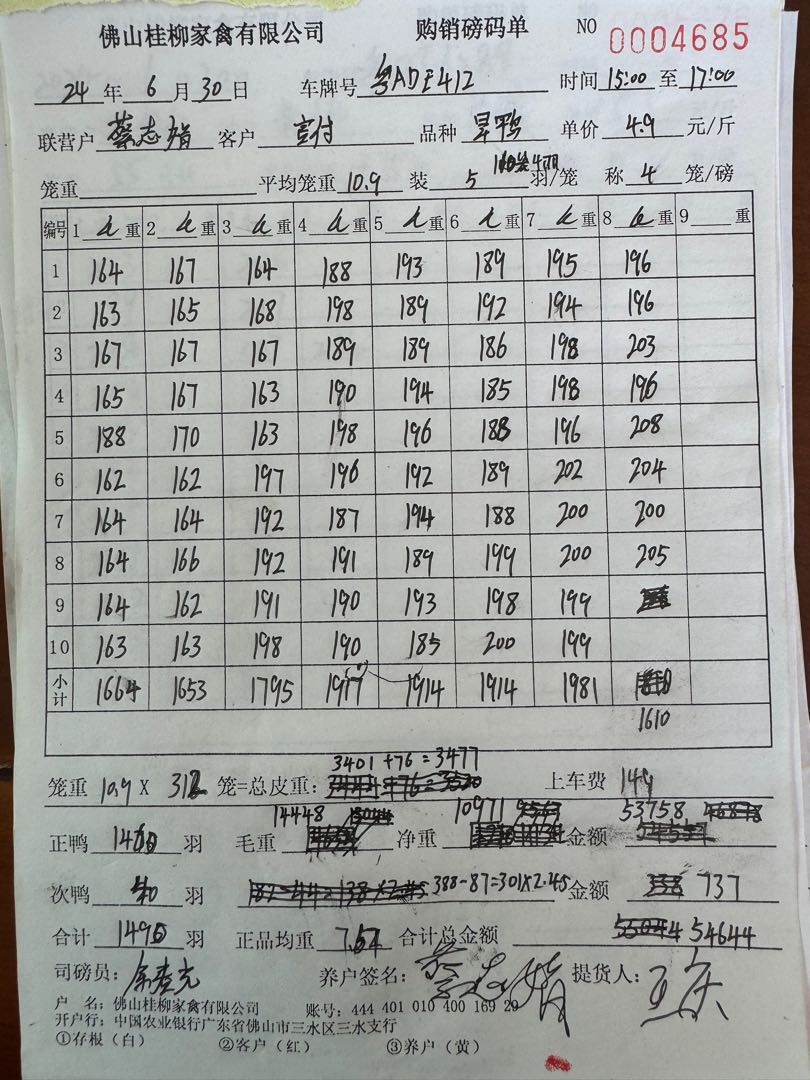 佛山桂柳家禽有限公司 购销磅码单 NO 0004685
24 年 6 月 30 日 车牌号 粤ADE412 时间 15:00 至 17:00
联营户 蔡志娟 客户 品种 旱鸭 单价 4.9 元/斤
笼重 平均笼重 10.9 装 5 羽/笼 称 4 笼/磅
编号 1 重 2 重 3 重 4 重 5 重 6 重 7 重 8 重 9 重
1 164 167 164 188 193 189 195 196
2 163 165 168 198 189 192 194 196
3 167 167 167 189 189 186 198 203
4 165 167 163 190 194 185 198 196
5 188 170 163 198 196 188 196 208
6 162 162 197 196 192 189 202 204
7 164 164 192 187 194 188 200 200
8 164 166 192 191 189 199 200 205
9 164 162 191 190 193 198 199
10 163 163 198 190 185 200 199
小计 1664 1653 1795 1917 1914 1914 1981
1610
3401 + 76 = 3477
笼重 10.9 X 312 笼=总皮重: 上车费 149
14448 10971 53758
正鸭 羽 毛重 净重 金额
次鸭 羽 388-87=301X2.45 金额 737
合计 羽 正品均重 合计总金额 54644
司磅员: 养户签名: 蔡志娟 提货人:
户 名: 佛山桂柳家禽有限公司 账号: 444 401 010 400 169 29
开户行: 中国农业银行广东省佛山市三水区三水支行
①存根(白) ②客户(红) ③养户(黄)